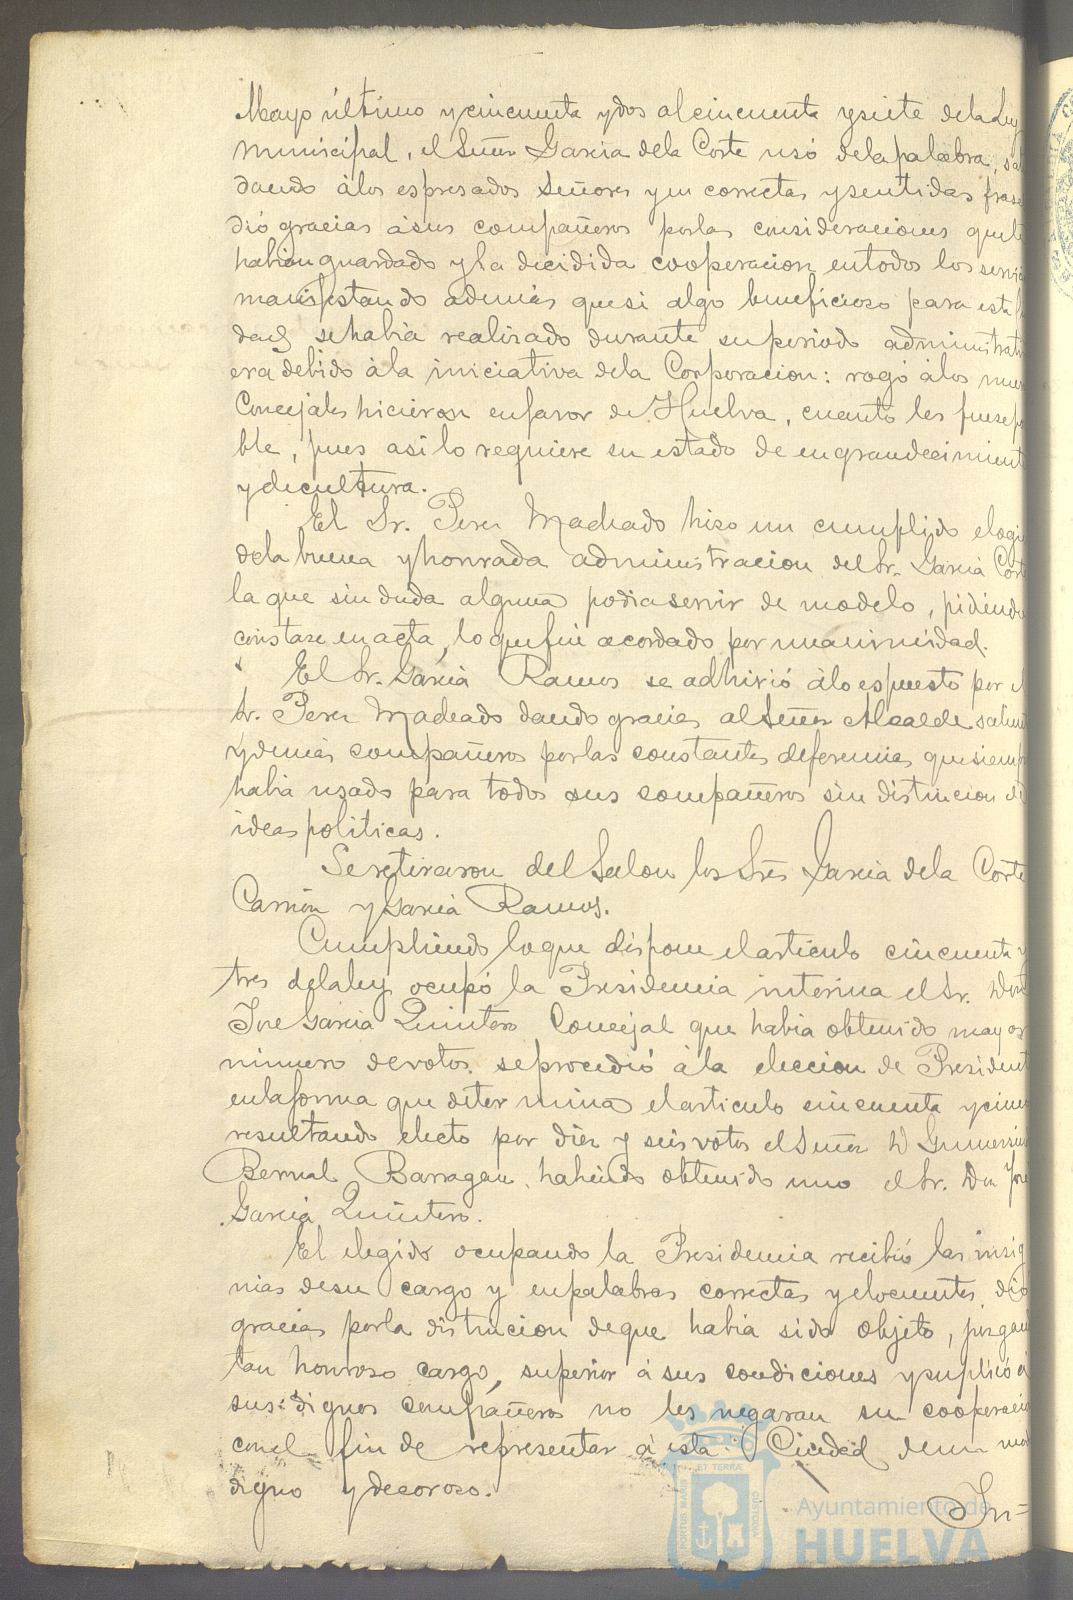 Mayo último y cincuenta y dos al cincuenta y siete de la Ley
Municipal, el Señor Garcia de la Corte usó de la palabra, sa
dando á los espresados Señores y en correctas y sentidas frase
dió gracias á sus compañeros por las consideraciones que le
habian guardado y la decidida cooperacion en todos los servici
manifestando además que si algo beneficioso para esta
dad se habia realizado durante su periodo administrati
era debido á la iniciativa de la Corporacion: rogó á los nuev
Concejales hicieron en favor de Huelva, cuanto les fuese po
ble, pues asi lo requiere su estado de engrandecimient
y de cultura.
El Sr. Perez Machado hizo un cumplido elogi
de la buena y honrada administracion del Sr. Garcia Corte
la que sin duda alguna podia servir de modelo, pidiendo
constase en acta, lo que fué acordado por unanimidad.
El Sr. Garcia Ramos se adhirió á lo espuesto por el
Sr. Perez Machado dando gracias al Señor Alcalde salient
y demás compañeros por las constantes deferencias que siemp
habia usado para todos sus compañeros sin distincion de
ideas politicas.
Se retiraron del Salon los Sres Garcia de la Corte
Carrion y Garcia Ramos.
Cumpliendo lo que dispone el articulo cincuenta y
tres de la ley ocupó la Presidencia interina el Sr. Don
José Garcia Quintero Concejal que habia obtenido mayor
número de votos. se procedió á la eleccion de President
en la forma que determina el articulo cincuenta y cinco
resultando electo por diez y seis votos el Señor D
Bernal Barragan, habiendo obtenido uno el Sr. Don José
Garcia Quintero.
El elegido ocupando la Presidencia recibió las insig
nias de su cargo y en palabras correctas y elocuentes, dió
gracias por la distincion de que habia sido objeto, juzgand
tan honroso cargo, superior á sus condiciones y suplicó á
sus dignos compañeros no les negaran su cooperació
con el fin de representar á esta Ciudad de un mo
digno y decoroso.
In=
PORTUS MARIS ET TERRÆ CUSTODIA
Ayuntamiento de
HUELVA